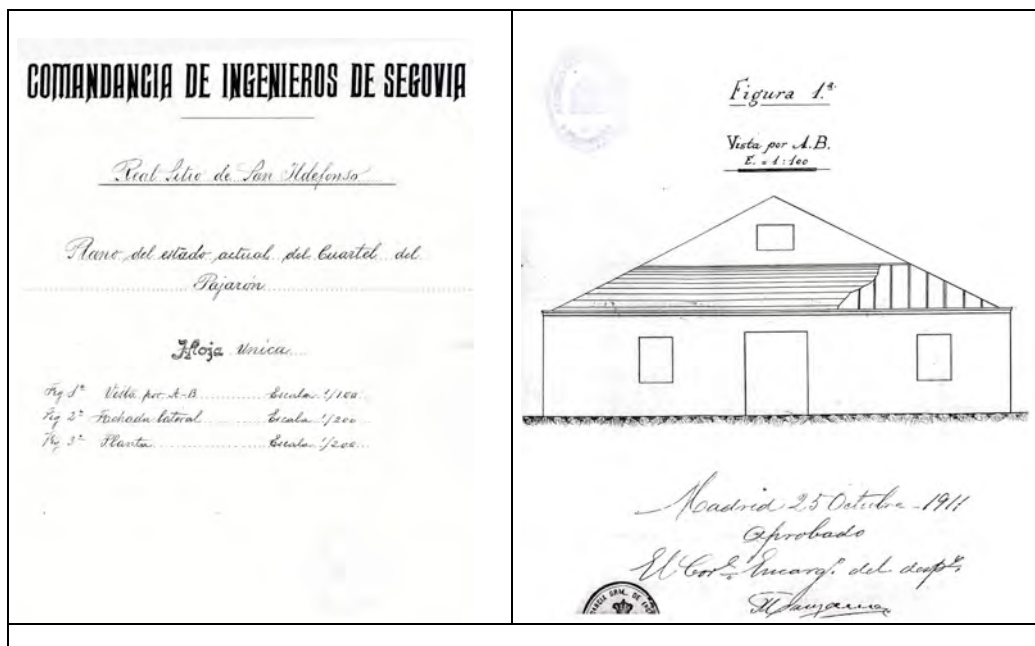 COMANDANCIA DE INGENIEROS DE SEGOVIA
Real Sitio de San Ildefonso
Plano del estado actual del Cuartel del
Pajarón
Hoja única
Fig 1ª Vista por A-B Escala 1/100
Fig 2ª Fachada lateral Escala 1/200
Fig 3ª Planta Escala 1/200
Figura 1.ª
Vista por A.B.
E. = 1:100
Madrid 25 Octubre - 1911
Aprobado
El Corl. Encargº. del despº.